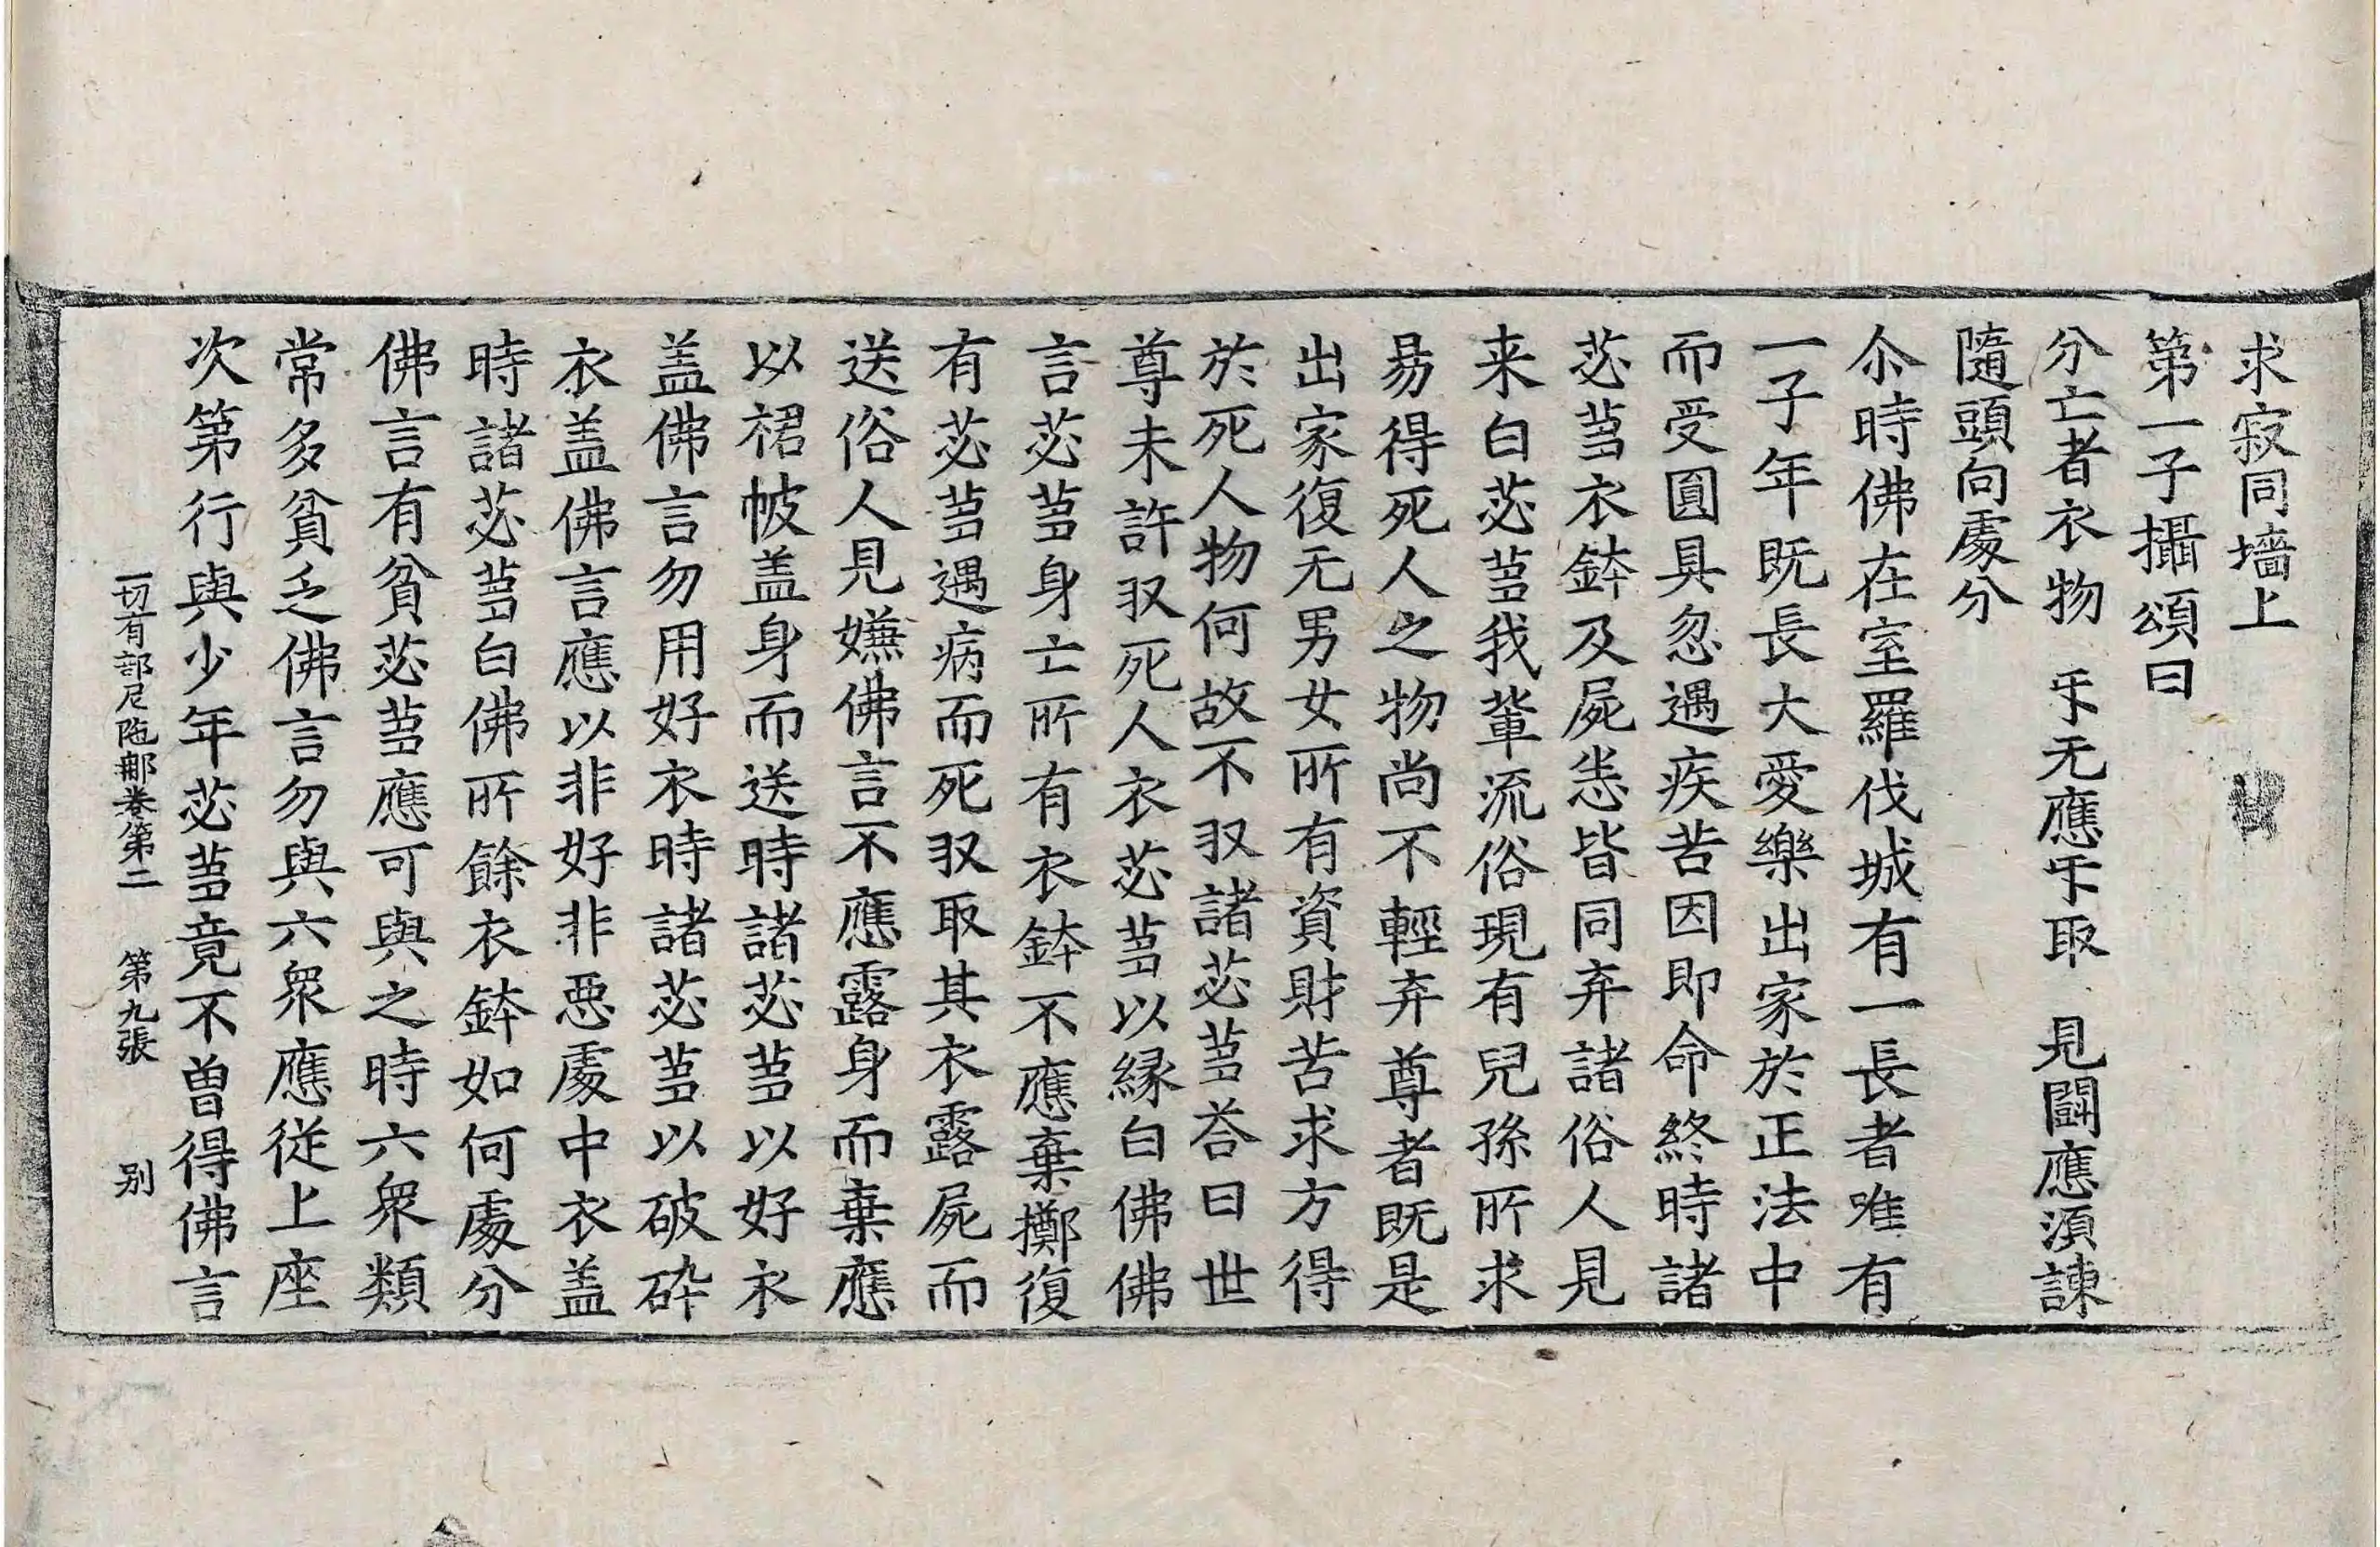 求寂同墻上
第一子攝頌曰
分亡者衣物　𠂔无應𠂔取　見鬪應湏諫
隨頭向處分
尒時佛在室羅伐城有一長者唯有
一子年既長大愛樂出家於正法中
而受圎具忽遇疾苦因即命終時諸
苾蒭衣鉢及屍悉皆同弃諸俗人見
来白苾蒭我輩流俗現有兒孫所求
易得死人之物尚不輕弃尊者既是
出家復无男女所有資財苦求方得
於死人物何故不収諸苾蒭荅曰世
尊未許収死人衣苾蒭以縁白佛佛
言苾蒭身亡所有衣鉢不應棄擲復
有苾蒭遇病而死収取其衣露屍而
送俗人見嫌佛言不應露身而棄應
以裙帔盖身而送時諸苾蒭以好衣
盖佛言勿用好衣時諸苾蒭以破碎
衣盖佛言應以非好非惡處中衣盖
時諸苾蒭白佛所餘衣鉢如何處分
佛言有貧苾蒭應可與之時六衆類
常多貧乏佛言勿與六衆應從上座
次第行與少年苾蒭竟不曽得佛言
一切有部尼陁那卷第二　第九張　别